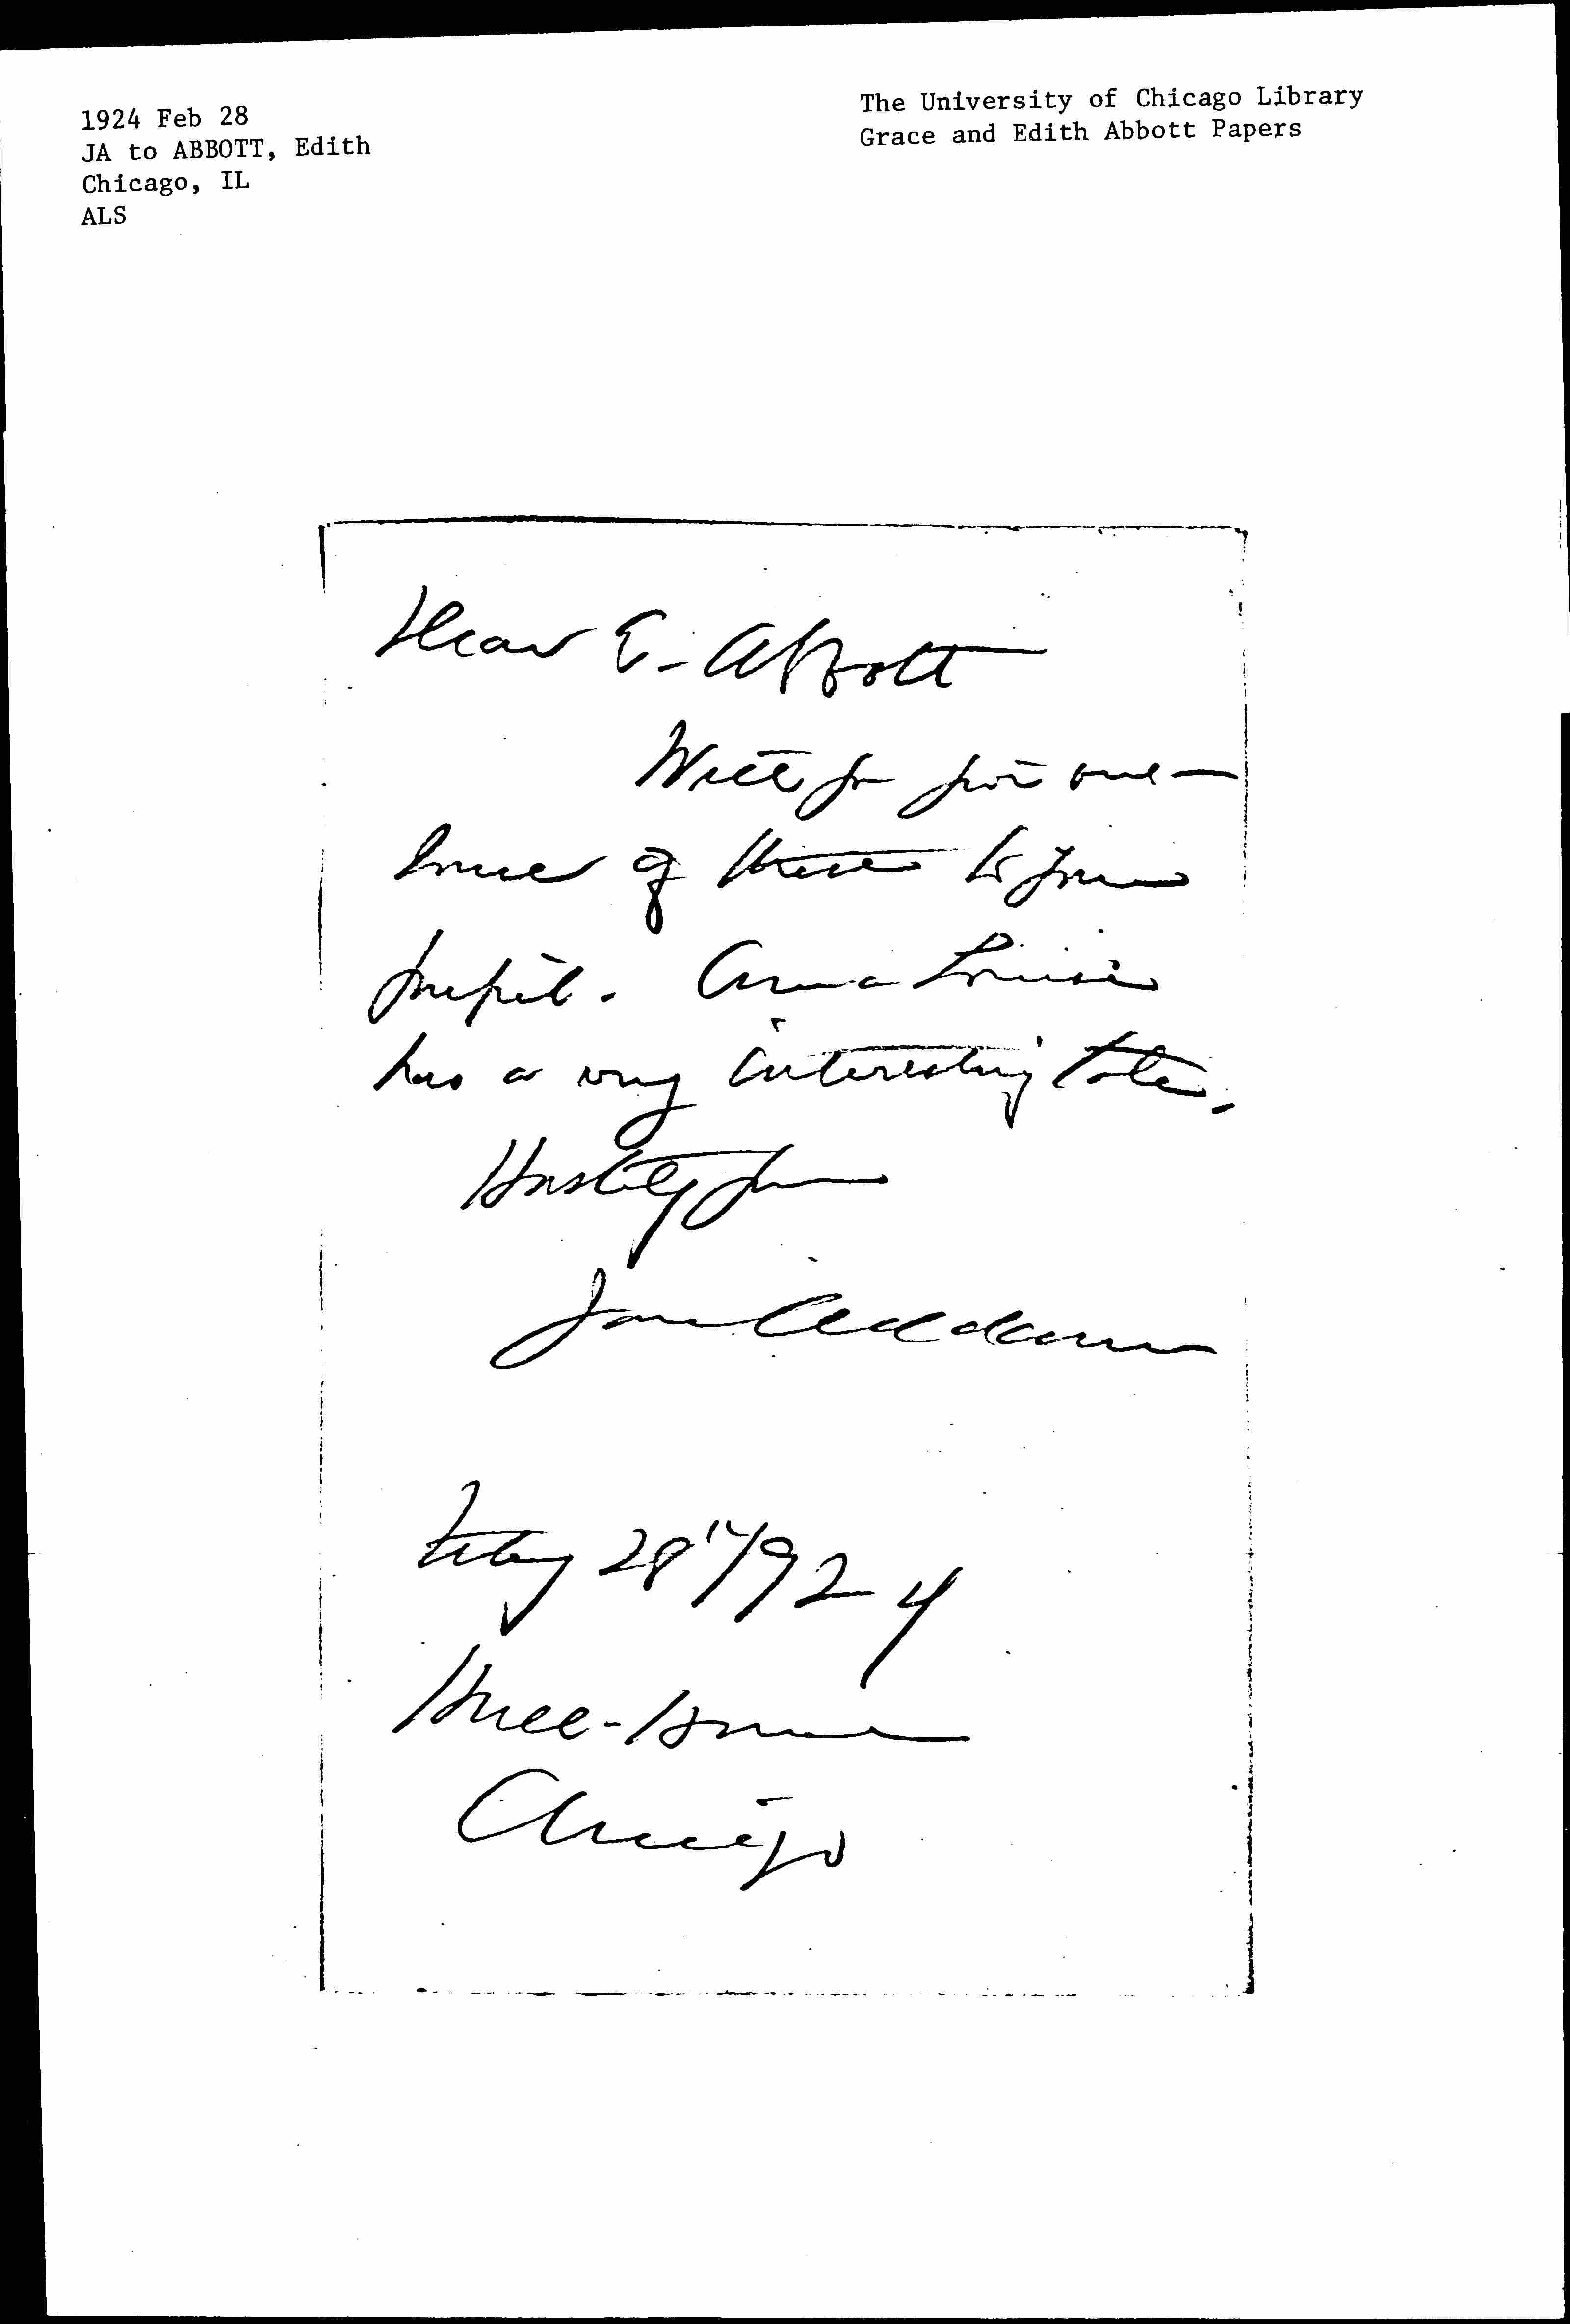 1924 Feb 28
JA to ABBOTT, Edith
Chicago, IL
ALS
The University of Chicago Library
Grace and Edith Abbott Papers
Dear E. Abbott
Will you give out
some of these to your
pupils. Anna Louise
has a very interesting tale.
Hastily yours
Jane Addams
Feby 28" 1924
Hull-House
Chicago